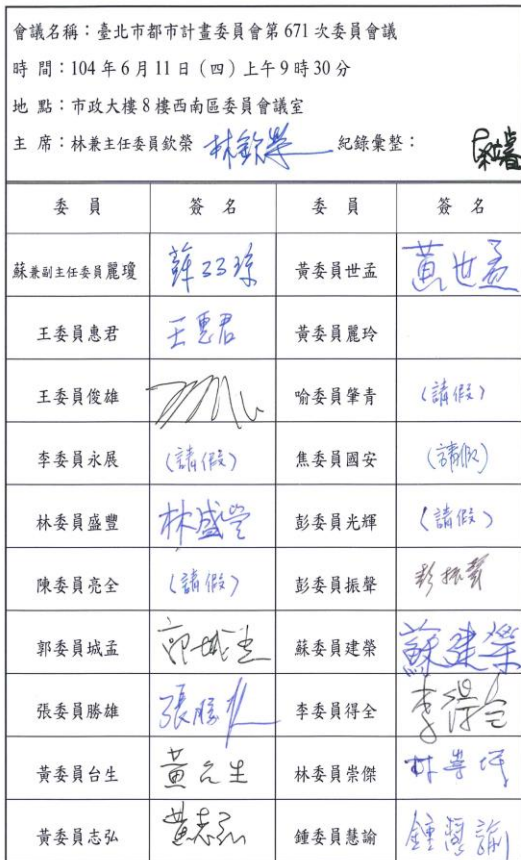 會議名稱：臺北市都市計畫委員會第 671 次委員會議
時 間：104 年 6 月 11 日（四）上午 9 時 30 分
地 點：市政大樓 8 樓西南區委員會議室
主 席：林兼主任委員欽榮 林欽榮 紀錄彙整：
委 員 簽 名 委 員 簽 名
蘇兼副主任委員麗瓊 黃委員世孟 黃世孟
王委員惠君 王惠君 黃委員麗玲
王委員俊雄 喻委員肇青 （請假）
李委員永展 （請假） 焦委員國安 （請假）
林委員盛豐 林盛豐 彭委員光輝 （請假）
陳委員亮全 （請假） 彭委員振聲 彭振聲
郭委員城孟 郭城孟 蘇委員建榮 蘇建榮
張委員勝雄 張勝雄 李委員得全 李得全
黃委員台生 黃台生 林委員崇傑 林崇傑
黃委員志弘 黃志弘 鍾委員慧諭 鍾慧諭